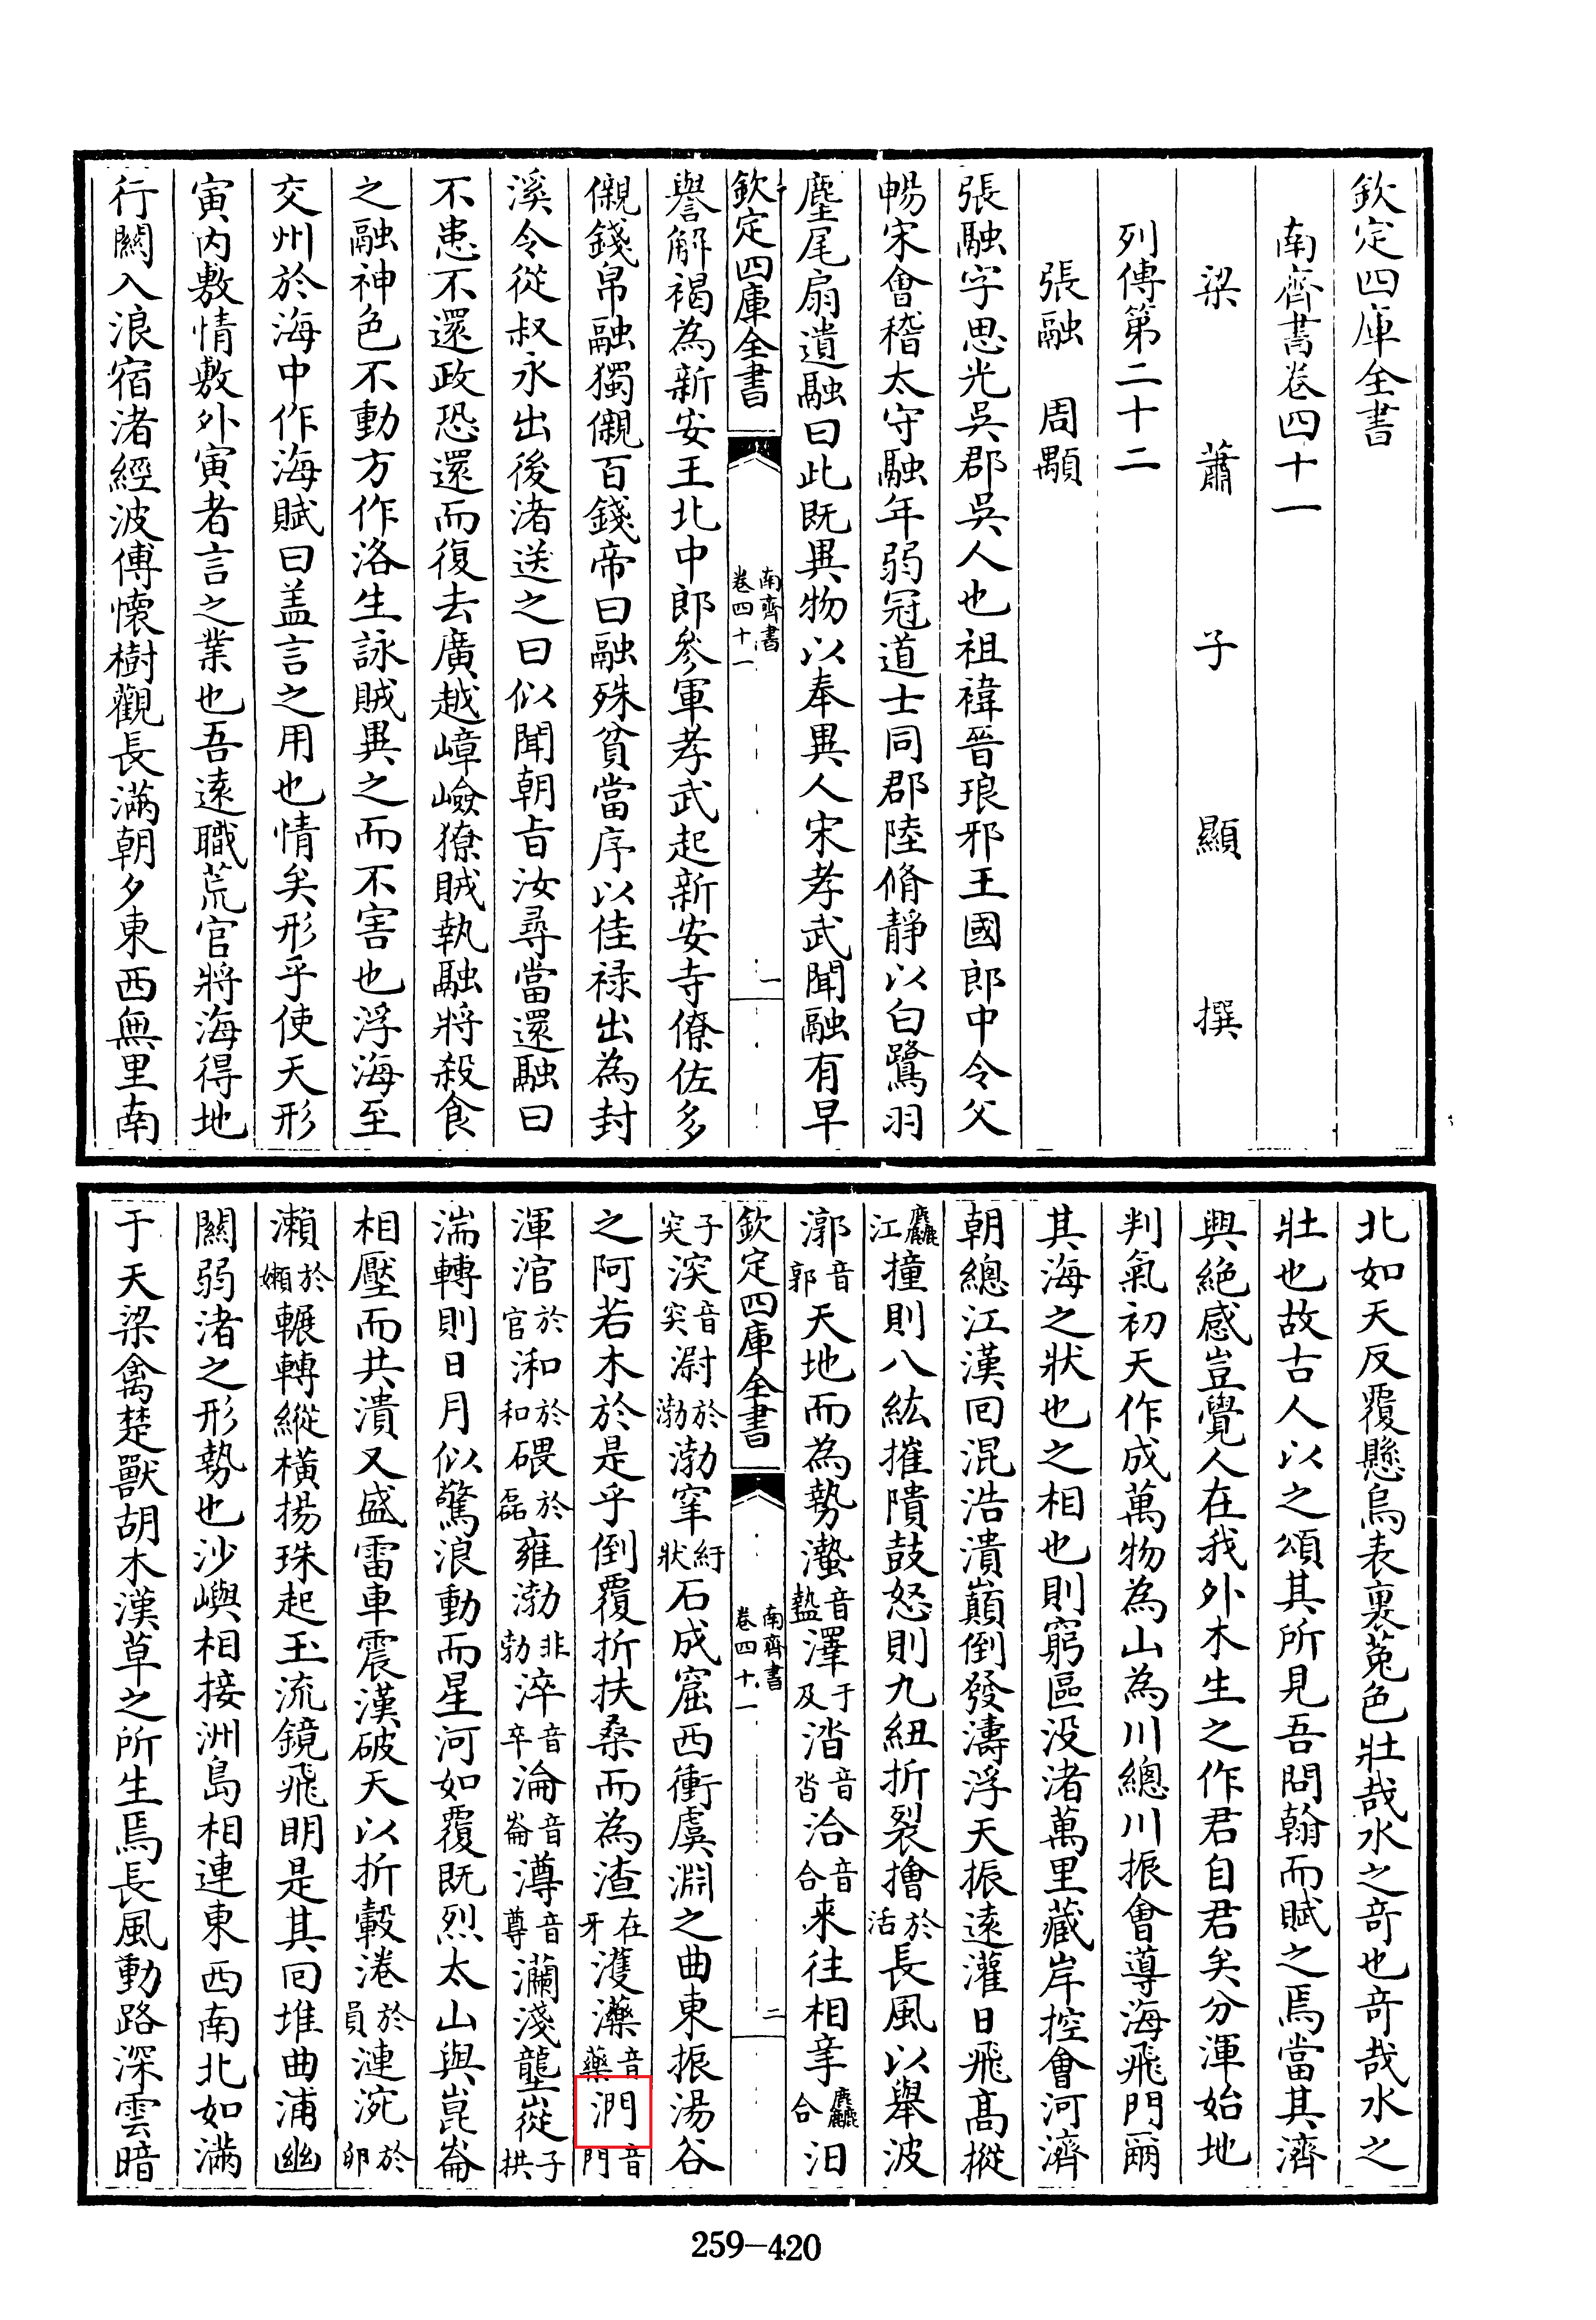 欽定四庫全書
南齊書卷四十一
梁蕭子顯撰
列傳第二十二
張融 周顒
張融字思光吳郡吳人也祖褘晉琅邪王國郎中令父
暢宋會稽太守融年弱冠道士同郡陸脩靜以白鷺羽
麈尾扇遺融曰此既異物以奉異人宋孝武聞融有早
欽定四庫全書 南齊書卷四十一 一
譽解褐為新安王北中郎參軍孝武起新安寺僚佐多
儭錢帛融獨儭百錢帝曰融殊貧當序以佳禄出為封
溪令從叔永出後渚送之曰似聞朝旨汝尋當還融曰
不患不還政恐還而復去廣越嶂嶮獠賊執融將殺食
之融神色不動方作洛生詠賊異之而不害也浮海至
交州於海中作海賦曰盖言之用也情矣形乎使天形
寅内敷情敷外寅者言之業也吾遠職荒官將海得地
行關入浪宿渚經波傅懷樹觀長滿朝夕東西無里南
北如天反覆懸烏表裏菟色壯哉水之竒也竒哉水之
壯也故古人以之頌其所見吾問翰而賦之焉當其濟
興絶感豈覺人在我外木生之作君自君矣分渾始地
判氣初天作成萬物為山為川總川振會導海飛門爾
其海之狀也之相也則窮區没渚萬里藏岸控會河濟
朝總江漢回混浩潰巔倒發濤浮天振遠灌日飛高摐
麤江撞則八紘摧隤鼓怒則九紐折裂擔於活長風以舉波
漷音郭天地而為勢灪音㽮澤于及涾音沓洽音合来往相㪍麤合汩
欽定四庫全書 南齊書卷四十一 二
子突湥音突㵟於渤渤窂紆状石成窟西衝虞淵之曲東振湯谷
之阿若木於是乎倒覆折扶桑而為渣在牙濩濼音藥㵍音門
渾涫於官湁於和碨於磊雍渤非勃淬音卒淪音崙澊音尊灡淺壟嵸子拱
湍轉則日月似驚浪動而星河如覆既烈太山與崑崙
相壓而共潰又盛雷車震漢破天以折轂淃於員漣涴於卵
瀨於嬾輾轉縱橫揚珠起玉流鏡飛明是其回堆曲浦幽
關弱渚之形勢也沙嶼相接洲島相連東西南北如滿
于天梁禽楚獸胡木漢草之所生焉長風動路深雲暗
259-420